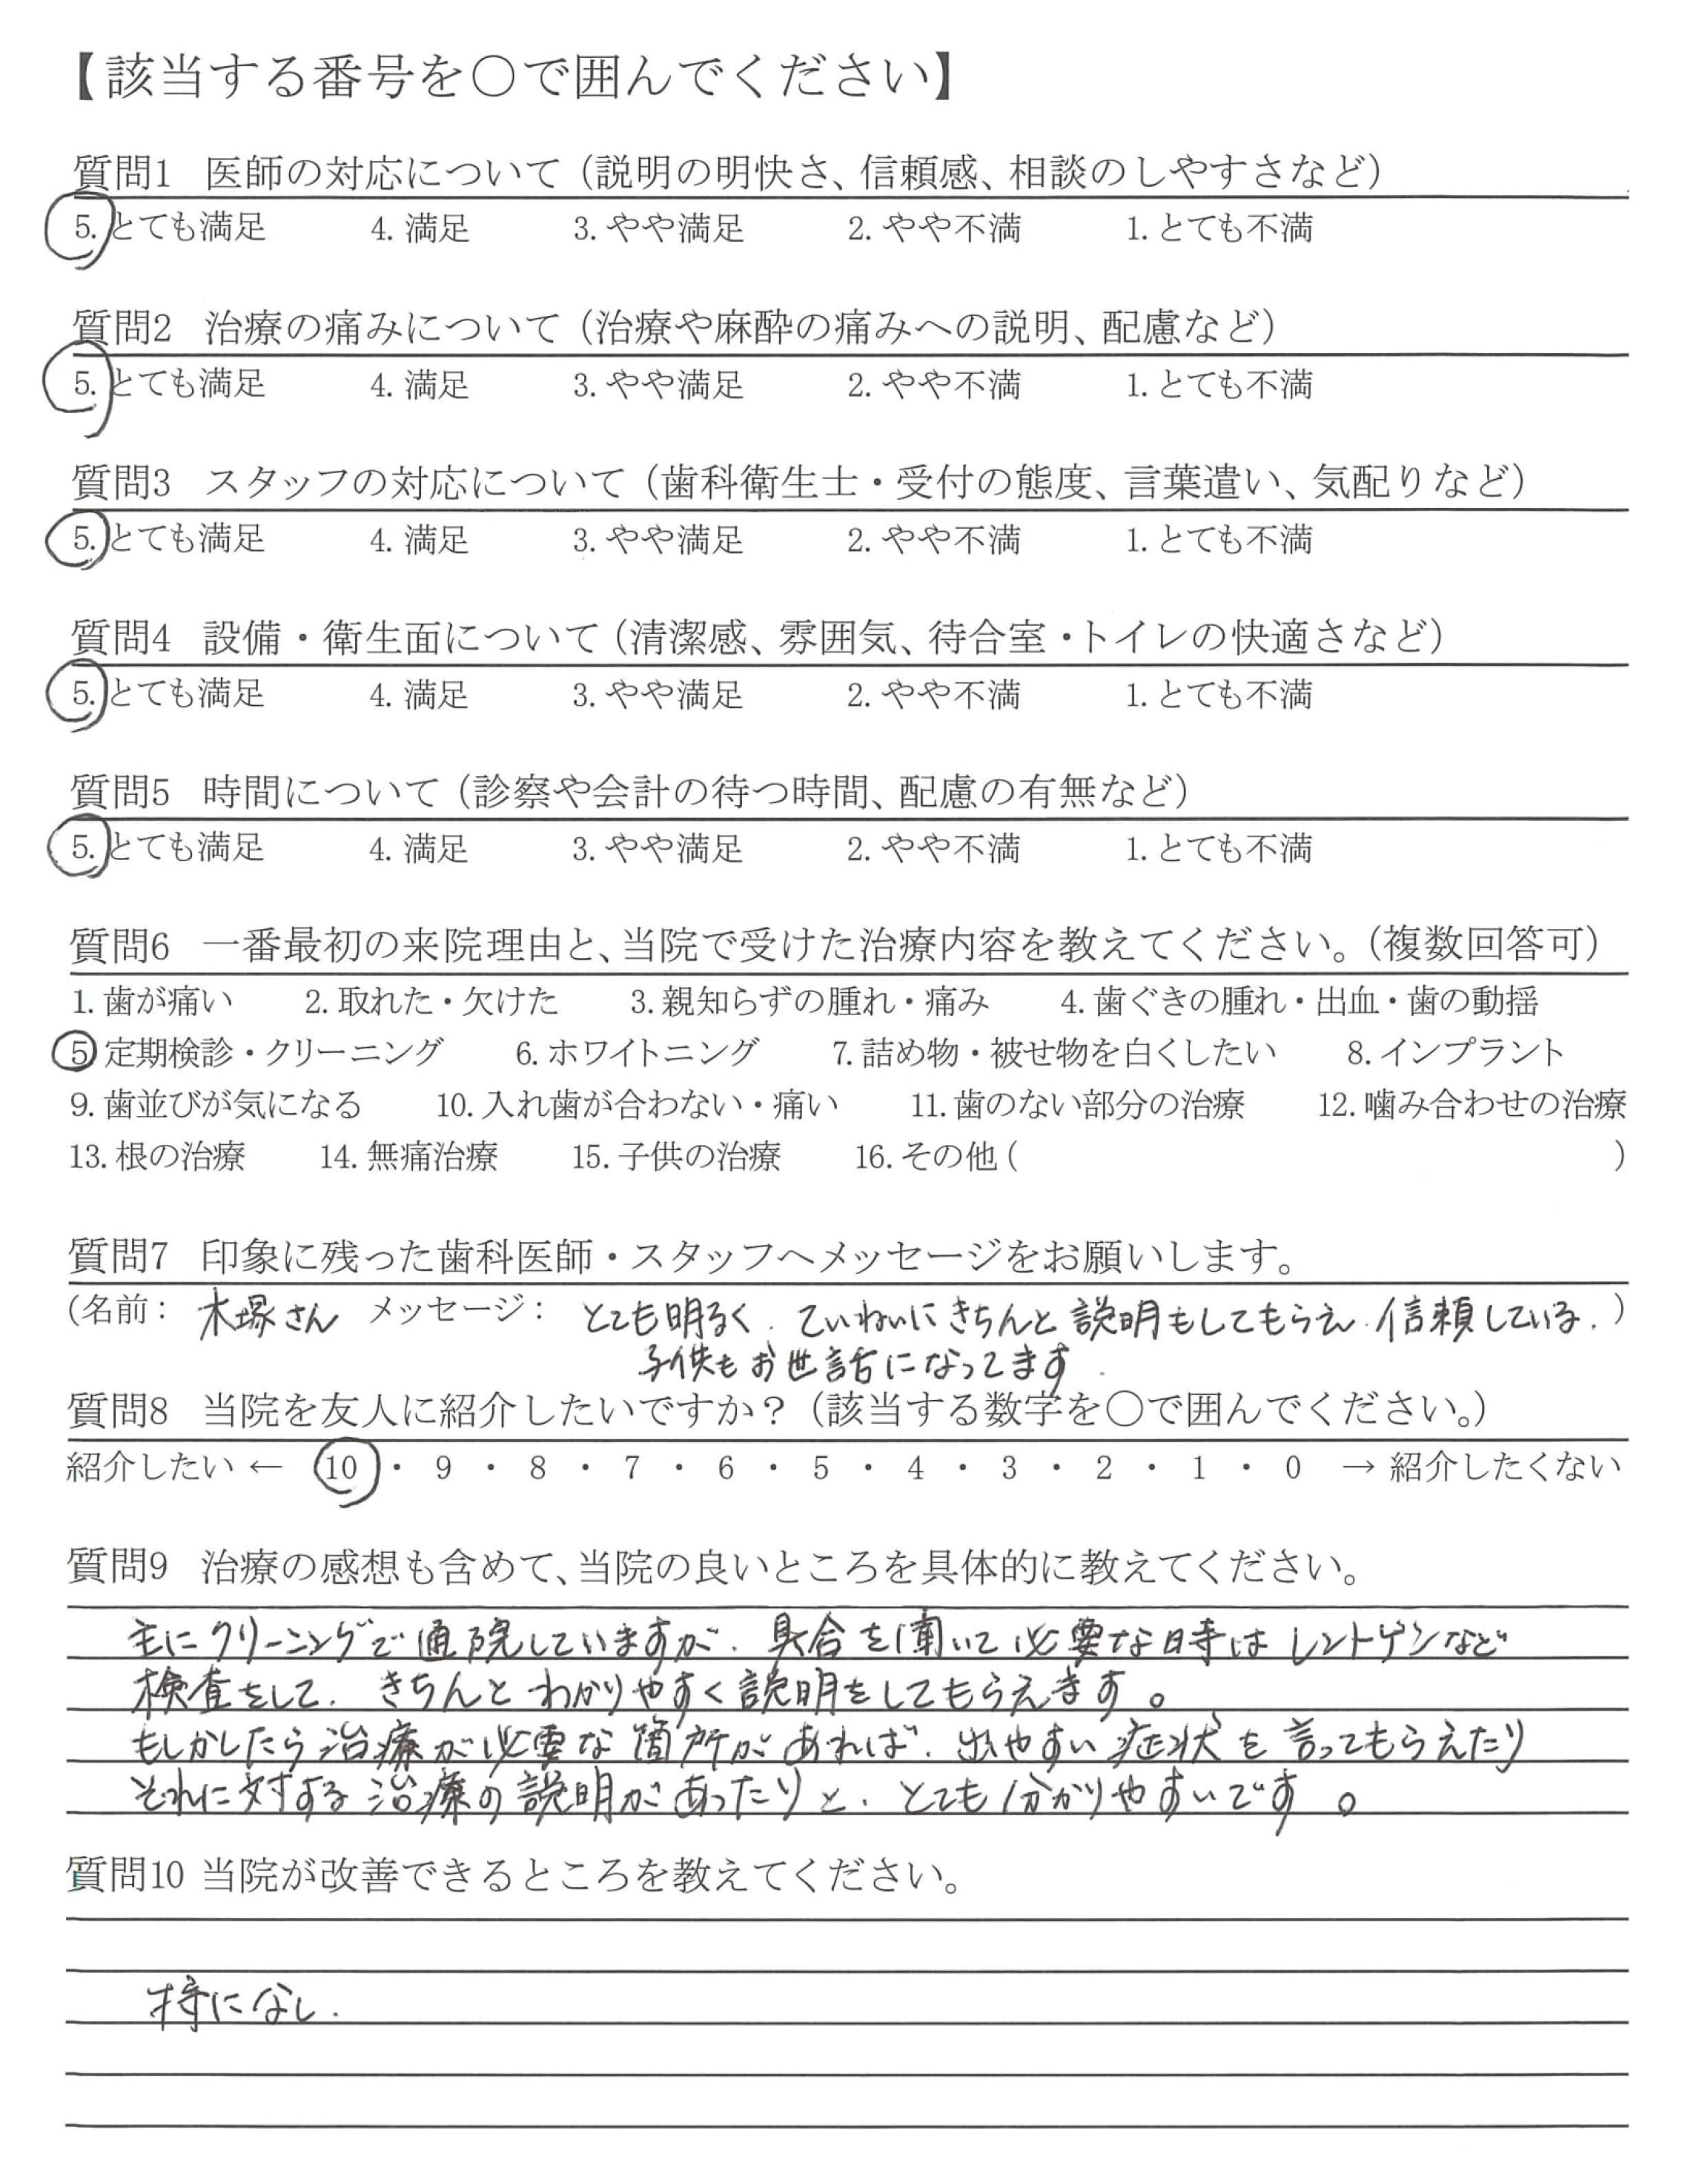 【該当する番号を〇で囲んでください】
質問1 医師の対応について（説明の明快さ、信頼感、相談のしやすさなど）
5. とても満足 4. 満足 3. やや満足 2. やや不満 1. とても不満
質問2 治療の痛みについて（治療や麻酔の痛みへの説明、配慮など）
5. とても満足 4. 満足 3. やや満足 2. やや不満 1. とても不満
質問3 スタッフの対応について（歯科衛生士・受付の態度、言葉遣い、気配りなど）
5. とても満足 4. 満足 3. やや満足 2. やや不満 1. とても不満
質問4 設備・衛生面について（清潔感、雰囲気、待合室・トイレの快適さなど）
5. とても満足 4. 満足 3. やや満足 2. やや不満 1. とても不満
質問5 時間について（診察や会計の待つ時間、配慮の有無など）
5. とても満足 4. 満足 3. やや満足 2. やや不満 1. とても不満
質問6 一番最初の来院理由と、当院で受けた治療内容を教えてください。（複数回答可）
1. 歯が痛い 2. 取れた・欠けた 3. 親知らずの腫れ・痛み 4. 歯ぐきの腫れ・出血・歯の動揺
5 定期検診・クリーニング 6. ホワイトニング 7. 詰め物・被せ物を白くしたい 8. インプラント
9. 歯並びが気になる 10. 入れ歯が合わない・痛い 11. 歯のない部分の治療 12. 噛み合わせの治療
13. 根の治療 14. 無痛治療 15. 子供の治療 16. その他（ ）
質問7 印象に残った歯科医師・スタッフへメッセージをお願いします。
（名前： 木塚さん メッセージ： とても明るく、ていねいにきちんと説明もしてもらえ、信頼している。）
子供もお世話になってます。
質問8 当院を友人に紹介したいですか？（該当する数字を〇で囲んでください。）
紹介したい ← 10 ・ 9 ・ 8 ・ 7 ・ 6 ・ 5 ・ 4 ・ 3 ・ 2 ・ 1 ・ 0 → 紹介したくない
質問9 治療の感想も含めて、当院の良いところを具体的に教えてください。
主にクリーニングで通院していますが、具合を聞いて必要な時はレントゲンなど
検査をして、きちんとわかりやすく説明をしてもらえます。
もしかしたら治療が必要な箇所があれば、出やすい症状を言ってもらえたり
それに対する治療の説明があったりと、とても分かりやすいです。
質問10 当院が改善できるところを教えてください。
特になし．